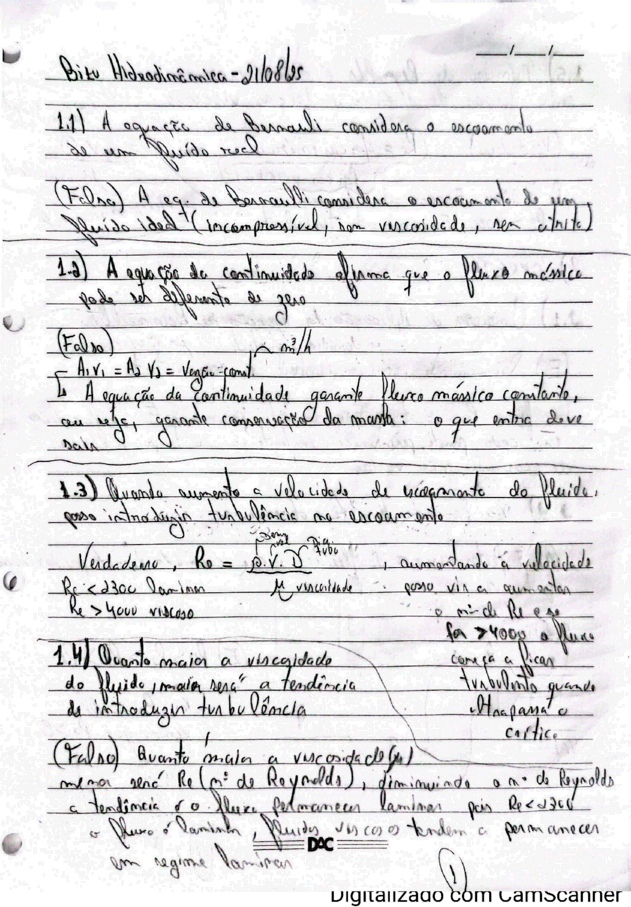 __/__/__
Bizu Hidrodinâmica - 21/08/25
1.1) A equação de Bernauli considera o escoamento
de um fluído real
(Falsa) A eq. de Bernaulli considera o escoamento de um
fluído ideal (incompressível, sem viscosidade, sem atrito)
1.2) A equação da continuidade afirma que o fluxo mássico
pode ser diferente de zero
(Falso) m³/h
A₁V₁ = A₂V₂ = Vazão = const.
A equação da continuidade garante fluxo mássico constante,
ou seja, garante conservação da massa: o que entra deve
sair
1.3) Quando aumento a velocidade de escoamento do fluído,
posso introduzir turbulência no escoamento
Verdadeiro, Re = ρ.V.D / μ viscosidade, aumentando a velocidade
Re < 2300 laminar posso vir a aumentar
Re > 4000 viscoso o nº de Re e se
for > 4000 o fluxo
começa a ficar
turbulento quando
ultrapassa o
crítico
1.4) Quanto maior a viscosidade
do fluído, maior será a tendência
de introduzir turbulência
(Falso) Quanto maior a viscosidade (μ)
menor será Re (nº de Reynolds), diminuindo o nº de Reynolds
a tendência é o fluxo permanecer laminar pois Re < 2300
o fluxo é laminar, fluídos viscosos tendem a permanecer
em regime laminar
DAC
1
Digitalizado com CamScanner